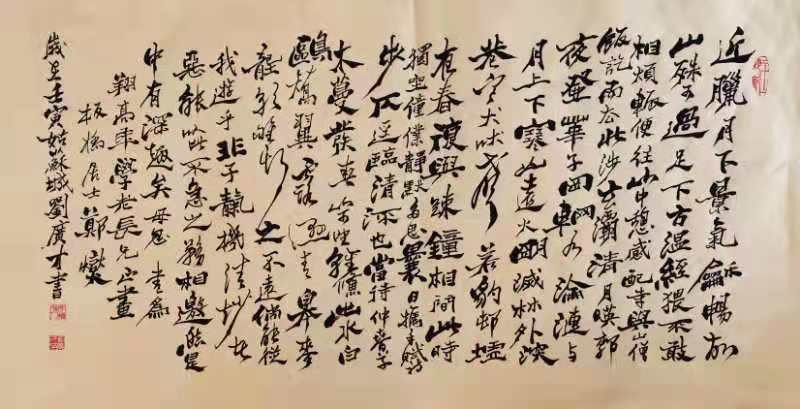 近臘月下景氣龢暢故
山殊可過足下方溫經猥不敢
相煩輒便往山中憩感配寺與山僧
飯訖而去北涉玄灞清月暎郭
夜登華子岡輞水淪漣與
月上下寒山遠火明滅林外深
巷寒犬吠聲若豹邨墟
夜舂復與疎鐘相間此時
獨坐僮僕靜默多思曩日攜手賦詩
步仄逕臨清流也當待仲春草
木蔓發春山可望輕鯈出水白
鷗矯翼露濕青皋麥
隴朝雊斯之不遠倘能從
我遊乎非子天機清妙者
惡能以此不急之務相邀然是
中有深趣矣毋忽書為
翔高年學老長兄正畫
板橋居士鄭燮
歲在壬寅姑蘇城劉廣才書